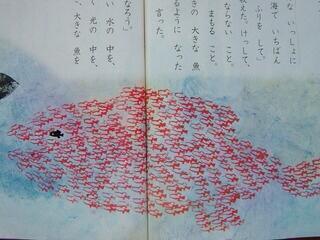 な いっしょに
海で いちばん
ふりを して。」
教えた。けっして、
ならない こと。
まもる こと。
きの 大きな 魚
るように なった
言った。
なろう」
い 水の 中を、
く 光の 中を、
、大きな 魚を